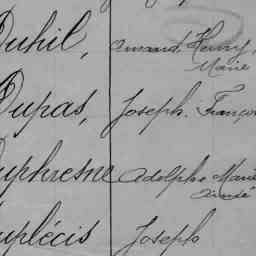 Duhil, Amand, Henry,
Marie
Dupas, Joseph. Franço
Duphresne Adolphe Marie
Aimé
Duplécis Joseph